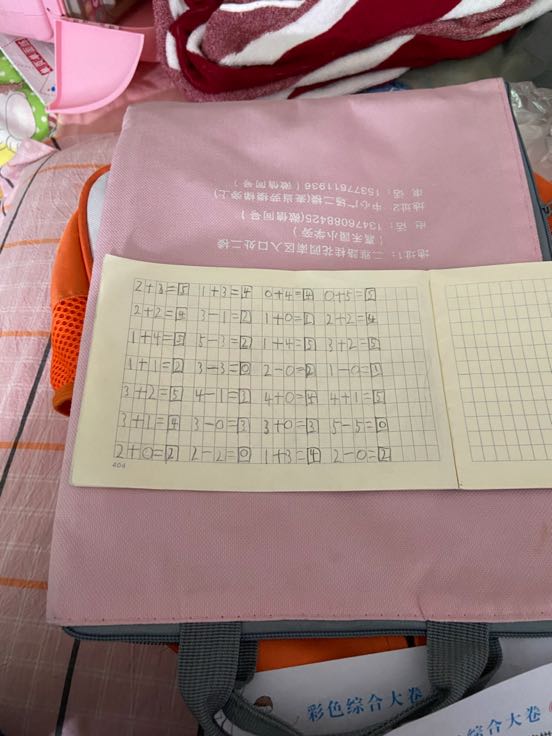 地址1：二雅路桂花园南区入口处二楼
（嘉禾园小学旁）
电话：13476088425(微信同号)
地址2：中心广场二楼(麦当劳楼梯旁上)
电话：15377611936（微信同号）
2+3=5 1+3=4 0+4=4 0+5=5
2+2=4 3-1=2 1+0=1 2+2=4
1+4=5 5-3=2 1+4=5 3+2=5
1+1=2 3-3=0 2-0=2 1-0=1
3+2=5 4-1=3 4+0=4 4+1=5
3+1=4 3-0=3 3+0=3 5-5=0
2+0=2 2-2=0 1+3=4 2-0=2
404
彩色综合大卷
彩色综合大卷